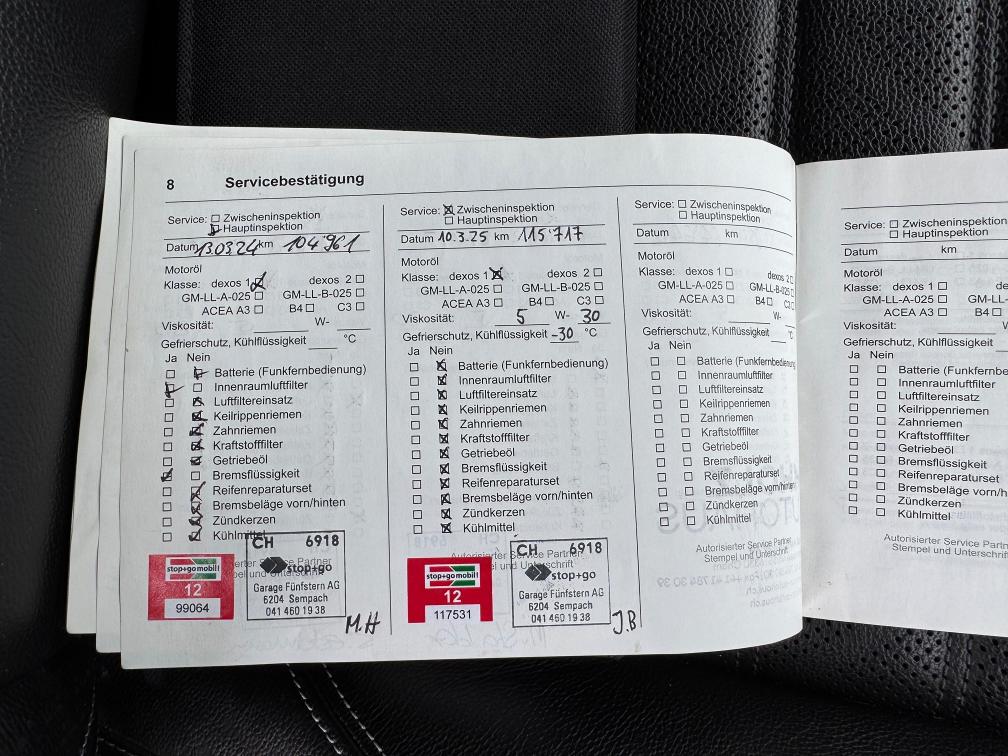 8 Servicebestätigung
Service: ☐ Zwischeninspektion
☒ Hauptinspektion
Datum 13.03.24 km 104'961
Motoröl
Klasse: dexos 1 ☒ dexos 2 ☐
GM-LL-A-025 ☐ GM-LL-B-025 ☐
ACEA A3 ☐ B4 ☐ C3 ☐
Viskosität: W-
Gefrierschutz, Kühlflüssigkeit °C
Ja Nein
☐ ☒ Batterie (Funkfernbedienung)
☒ ☐ Innenraumluftfilter
☐ ☒ Luftfiltereinsatz
☐ ☒ Keilrippenriemen
☐ ☒ Zahnriemen
☐ ☒ Kraftstofffilter
☐ ☒ Getriebeöl
☒ ☐ Bremsflüssigkeit
☐ ☒ Reifenreparaturset
☐ ☒ Bremsbeläge vorn/hinten
☐ ☒ Zündkerzen
☐ ☒ Kühlmittel
Service Partner
stop+go mobil!
12
99064
CH 6918
stop+go
Garage Fünfstern AG
6204 Sempach
041 460 19 38
M.H
Service: ☒ Zwischeninspektion
☐ Hauptinspektion
Datum 10.3.25 km 115'717
Motoröl
Klasse: dexos 1 ☒ dexos 2 ☐
GM-LL-A-025 ☐ GM-LL-B-025 ☐
ACEA A3 ☐ B4 ☐ C3 ☐
Viskosität: 5 W- 30
Gefrierschutz, Kühlflüssigkeit -30 °C
Ja Nein
☐ ☒ Batterie (Funkfernbedienung)
☐ ☒ Innenraumluftfilter
☐ ☒ Luftfiltereinsatz
☐ ☒ Keilrippenriemen
☐ ☒ Zahnriemen
☐ ☒ Kraftstofffilter
☐ ☒ Getriebeöl
☐ ☒ Bremsflüssigkeit
☐ ☒ Reifenreparaturset
☐ ☒ Bremsbeläge vorn/hinten
☐ ☒ Zündkerzen
☐ ☒ Kühlmittel
Service Partner
stop+go mobil!
12
117531
CH 6918
stop+go
Garage Fünfstern AG
6204 Sempach
041 460 19 38
J.B
Service: ☐ Zwischeninspektion
☐ Hauptinspektion
Datum km
Motoröl
Klasse: dexos 1 ☐ dexos 2 ☐
GM-LL-A-025 ☐ GM-LL-B-025 ☐
ACEA A3 ☐ B4 ☐ C3 ☐
Viskosität: W-
Gefrierschutz, Kühlflüssigkeit °C
Ja Nein
☐ ☐ Batterie (Funkfernbedienung
☐ ☐ Innenraumluftfilter
☐ ☐ Luftfiltereinsatz
☐ ☐ Keilrippenriemen
☐ ☐ Zahnriemen
☐ ☐ Kraftstofffilter
☐ ☐ Getriebeöl
☐ ☐ Bremsflüssigkeit
☐ ☐ Reifenreparaturset
☐ ☐ Bremsbeläge vorn/hinten
☐ ☐ Zündkerzen
☐ ☐ Kühlmittel
Autorisierter Service Partner
Stempel und Unterschrift
Service: ☐ Zwischeninspektion
☐ Hauptinspektion
Datum km
Motoröl
Klasse: dexos 1 ☐ de
GM-LL-A-025 ☐ GM-L
ACEA A3 ☐ B4 ☐
Viskosität: W-
Gefrierschutz, Kühlflüssigkeit
Ja Nein
☐ ☐ Batterie (Funkfernbe
☐ ☐ Innenraumluftfilter
☐ ☐ Luftfiltereinsatz
☐ ☐ Keilrippenriemen
☐ ☐ Zahnriemen
☐ ☐ Kraftstofffilter
☐ ☐ Getriebeöl
☐ ☐ Bremsflüssigkeit
☐ ☐ Reifenreparaturset
☐ ☐ Bremsbeläge vorn/h
☐ ☐ Zündkerzen
☐ ☐ Kühlmittel
Autorisierter Service Par
Stempel und Unterschrift